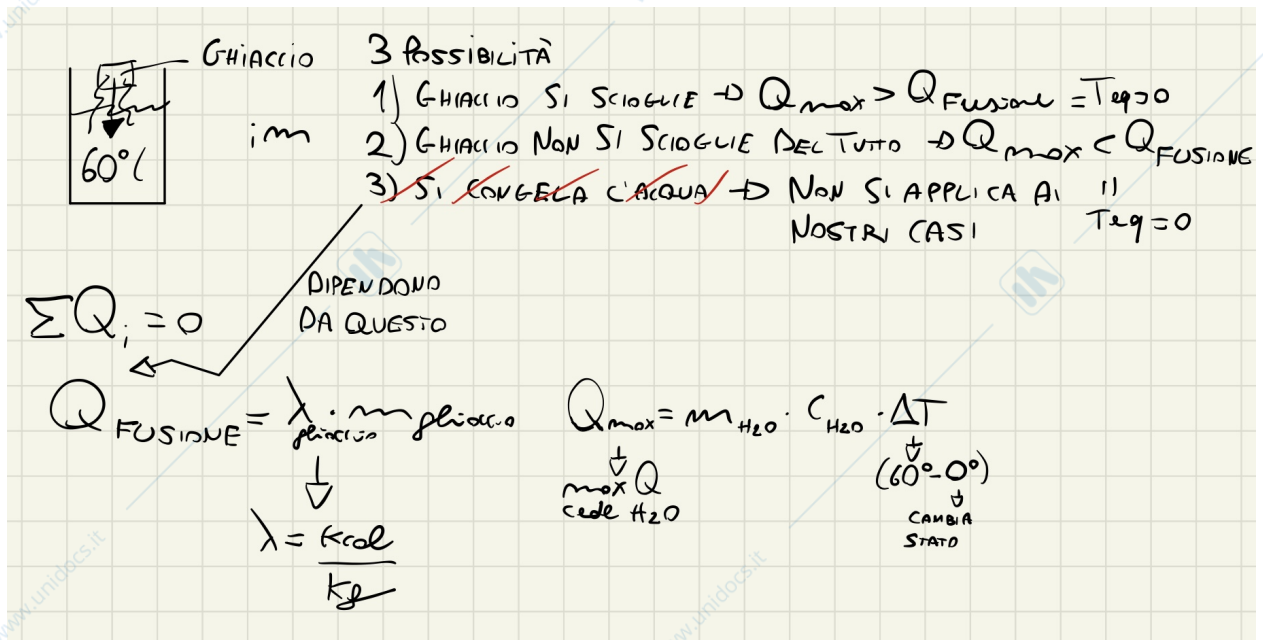 GHIACCIO
60°C
im
3 POSSIBILITÀ
1) GHIACCIO SI SCIOGLIE → Qmax > QFusione = Teq>0
2) GHIACCIO NON SI SCIOGLIE DEL TUTTO → Qmax < QFUSIONE
3) SI CONGELA L'ACQUA → NON SI APPLICA AI
NOSTRI CASI
"
Teq=0
DIPENDONO
DA QUESTO
ΣQi = 0
QFUSIONE = λghiaccio · mghiaccio
λ = Kcal
Kg
Qmax = mH2O · CH2O · ΔT
max Q
cede H2O
(60°-0°)
CAMBIA
STATO
www.unidocs.it
www.unidocs.it